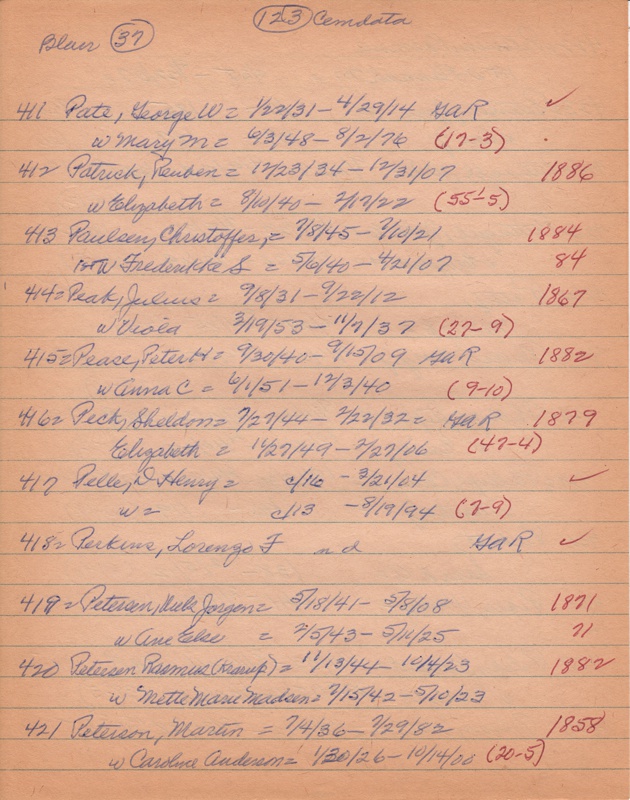 123 Cemdata
Blair 37
411 Pate, George W = 1/22/31 - 4/29/14 GAR ✓
w Mary M = 6/3/48 - 8/2/76 (17-3)
412 Patrick, Reuben = 12/23/34 - 12/31/07 1886
w Elizabeth = 8/10/40 - 2/17/22 (55-5)
413 Paulsen, Christoffer, = 7/8/45 - 7/10/21 1884
1st W Frederikke S = 5/6/40 - 4/21/07 84
414 = Peak, Julius = 9/8/31 - 9/22/12 1867
w Viola 3/19/53 - 11/7/37 (27-9)
415 = Pease, Peter H = 9/30/40 - 9/15/09 GAR 1882
w Anna C = 6/1/51 - 12/3/40 (9-10)
416 = Peck, Sheldon = 7/27/44 - 2/22/32 = GAR 1879
Elizabeth = 11/27/49 - 2/27/06 (47-4)
417 Pelle, D. Henry = c/16 - 3/21/04 ✓
w = c/13 - 8/19/94 (7-9)
418 = Perkins, Lorenzo F n d GAR ✓
419 = Petersen, Jorgen = 5/18/41 - 5/8/08 1871
w Ane Else = 2/5/43 - 5/11/25 71
420 Petersen Rasmus (Krarup) = 11/13/44 - 10/4/23 1882
w Mette Marie Madsen = 2/15/42 - 5/10/23
421 Peterson, Martin = 7/4/36 - 7/29/82 1858
w Caroline Anderson = 1/30/26 - 10/14/00 (20-5)